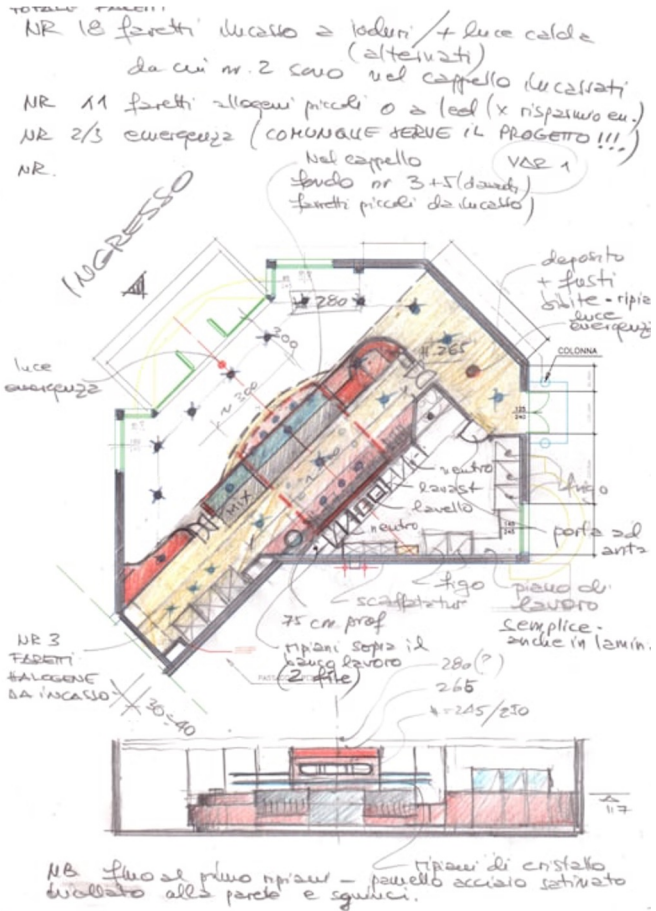 TOTALE FARETTI
NR 18 faretti incasso a ioduri / + luce calda
(alternati)
da cui nr. 2 sono nel cappello incassati
NR 11 faretti allogeni piccoli o a led (x risparmio en.)
NR 2/3 emergenza (COMUNQUE SERVE IL PROGETTO !!!)
NR.
Nel cappello
fondo nr 3+5
faretti piccoli da incasso)
VAR 1
INGRESSO
deposito
+ fusti
bibite - ripia
luce
emergenza
COLONNA
280
300
H. 265
luce
emergenza
MIX
neutro
lavast
lavello
neutro
frigo
porta ad
anta
frigo
scaffalatur
piano di
lavoro
semplice -
anche in lamin.
75 cm. prof
ripiani sopra il
banco lavoro
(2 file)
NR 3
FARETTI
HALOGENE
DA INCASSO
30-40
280 (?)
265
H=245/250
NB fino al primo ripiani - pannello acciaio satinato
incollato alla parete e sguinci.
ripiani di cristallo